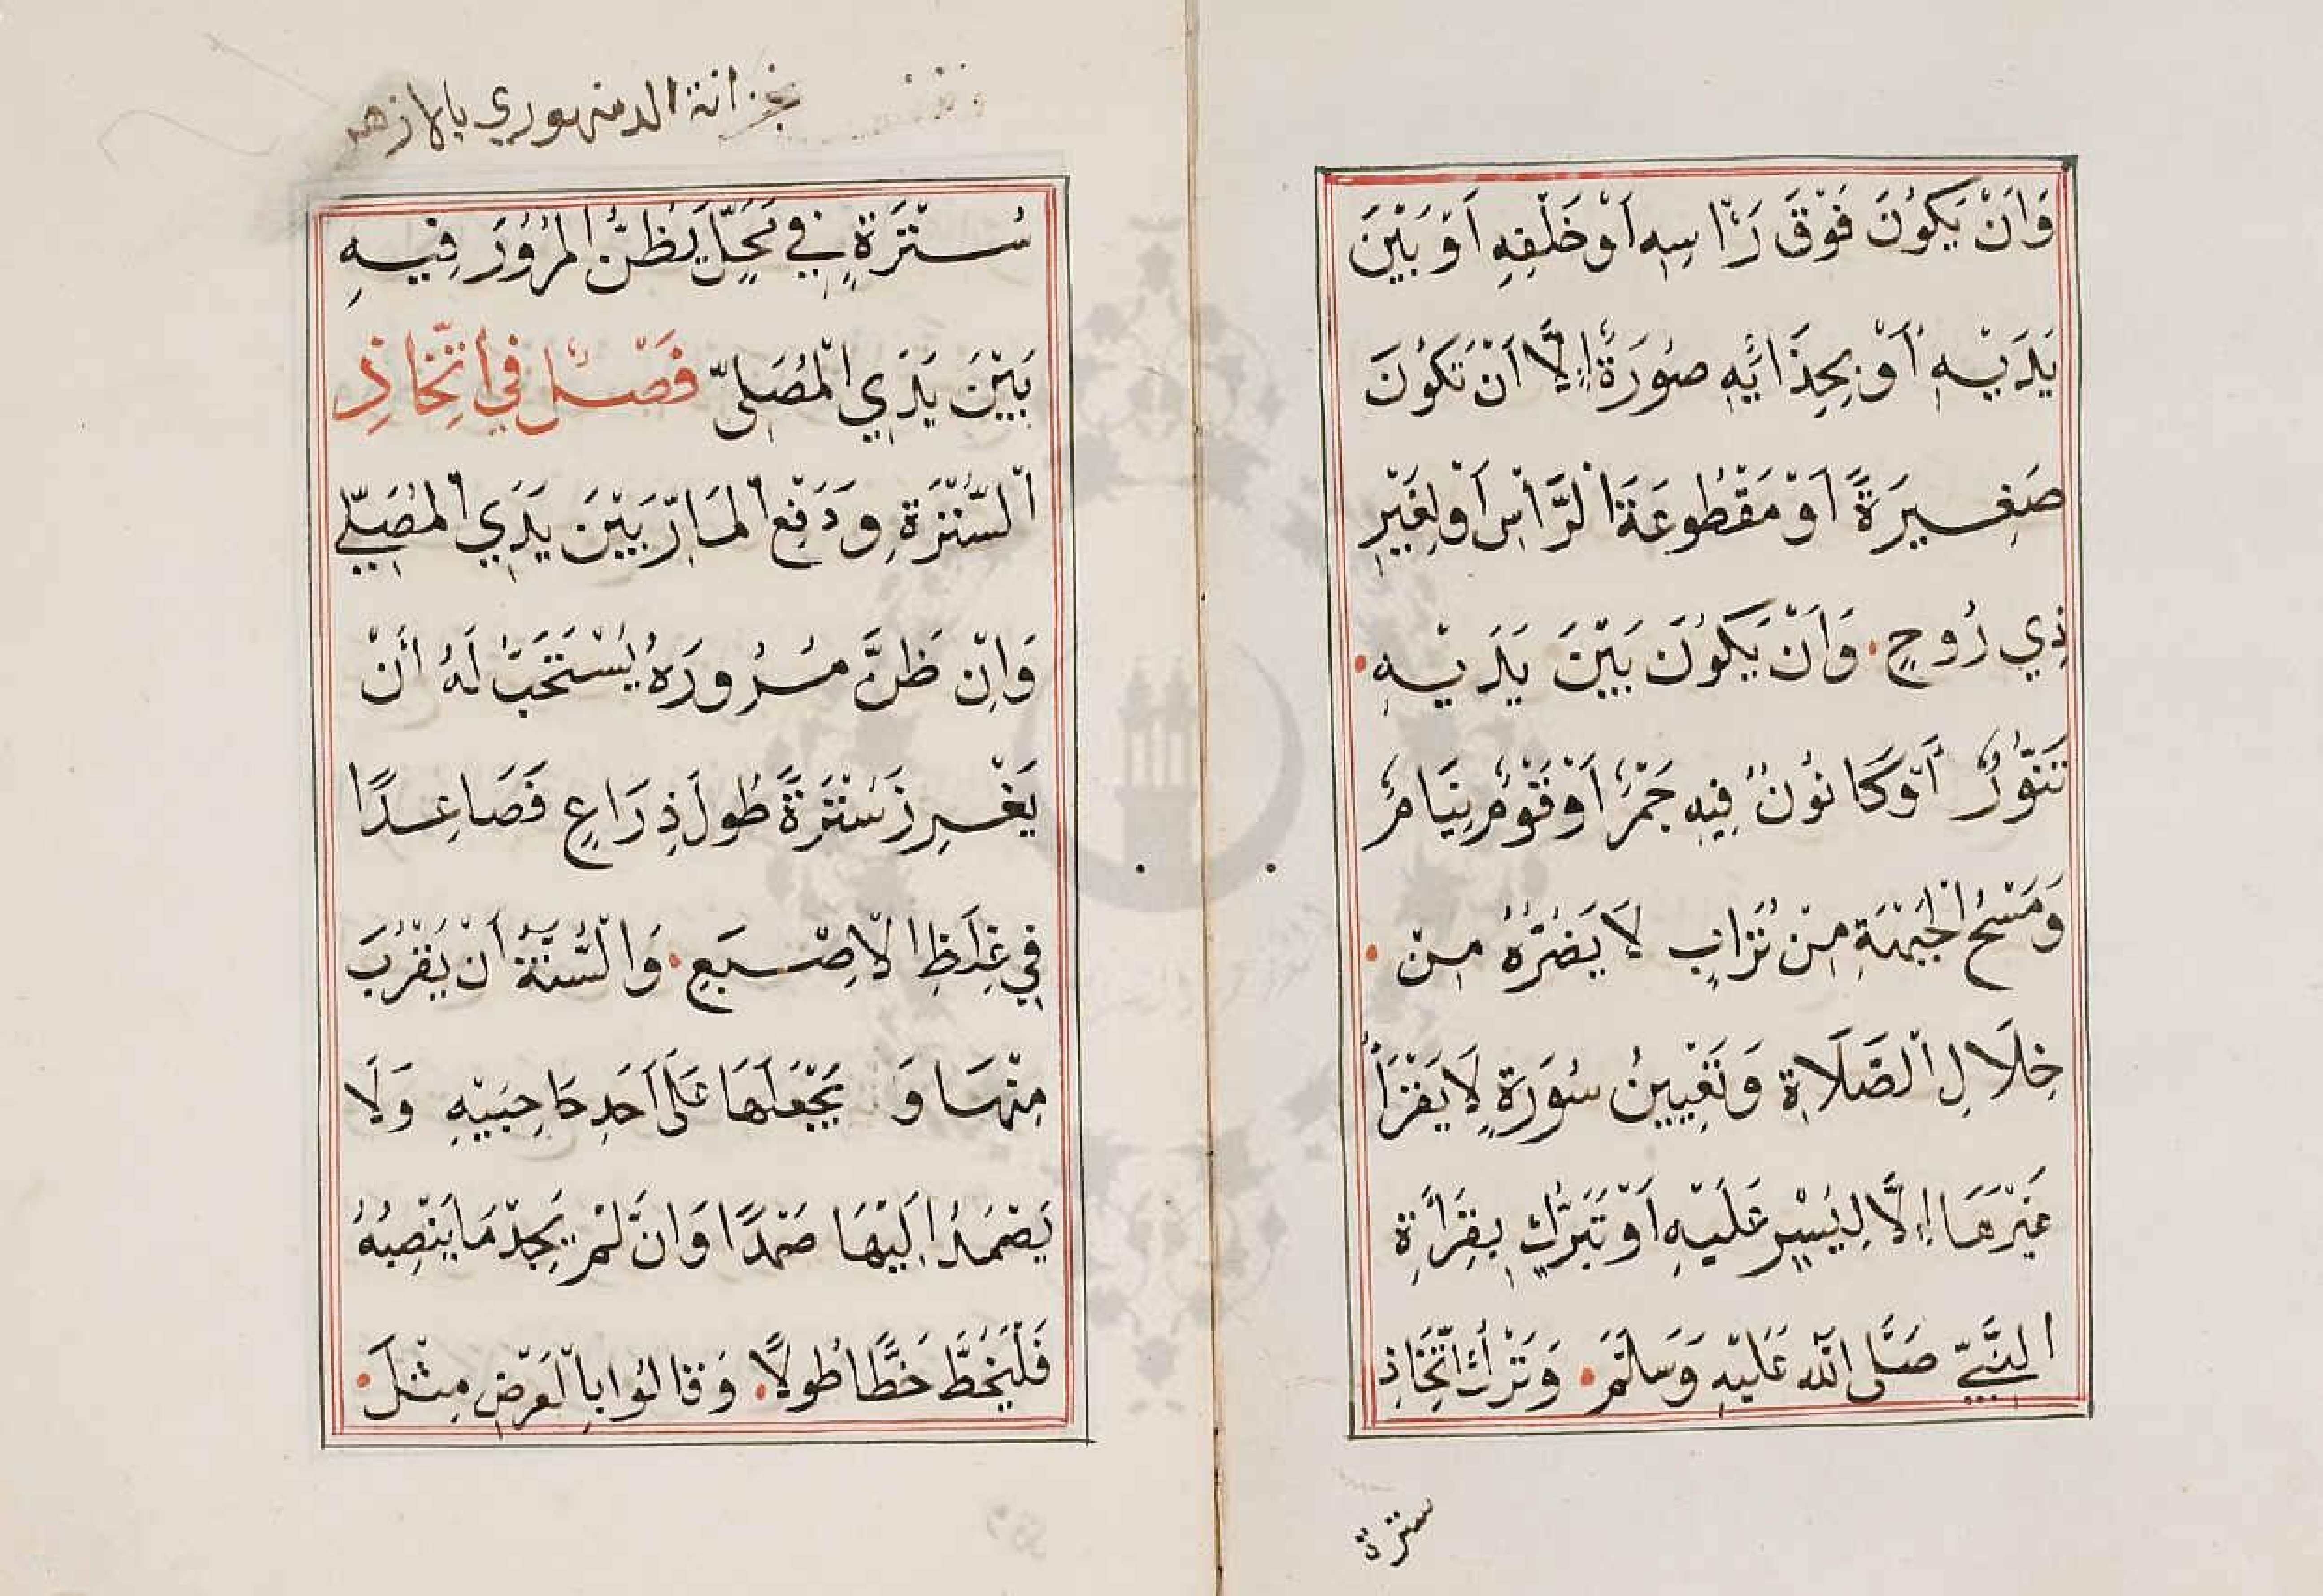 وَاَنْ يَكُوْنَ فَوْقَ رَاْسِهِ اَوْ خَلْفِهِ اَوْ بَيْنَ
يَدَيْهِ اَوْ بِحِذَائِهِ صُوْرَةٌ اِلَّا اَنْ تَكُوْنَ
صَغِيرَةً اَوْ مَقْطُوعَةَ الرَّاْسِ اَوْ لِغَيْرِ
ذِي رُوحٍ • وَاَنْ يَكُوْنَ بَيْنَ يَدَيْهِ •
تَنُّوْرٌ اَوْ كَانُوْنٌ فِيهِ جَمْرٌ اَوْ قَوْمٌ نِيَامٌ
وَمَسْحُ الْجَبْهَةِ مِنْ تُرَابٍ لَا يَضُرُّهُ مِنْ •
خِلَالِ الْصَّلَاةِ وَتَعْيِينُ سُوْرَةٍ لَا يَقْرَأُ
غَيْرَهَا اِلَّا لِيُسْرٍ عَلَيْهِ اَوْ تَبَرُّكٍ بِقِرَأَةِ
النَّبِيِّ صَلَّى اللّٰه عَلَيْهِ وَسَلَّمَ • وَتَرْكُ اتِّخَاذِ
سترة
بخزانة الدمنهوري بالازهر
سُتْرَةٍ فِي مَحَلٍّ يَظُنُّ الْمُرُوْرَ فِيهِ
بَيْنَ يَدَيِ الْمُصَلِّي فَصْلٌ في اتِّخَاذِ
الْسُّتْرَةِ وَدَفْعِ الْمَارِّ بَيْنَ يَدَيِ الْمُصَلِّي
وَاِنْ ظَنَّ مُرُورَهُ يُسْتَحَبُّ لَهُ أَنْ
يَغْرِزَ سُتْرَةً طُولَ ذِرَاعٍ فَصَاعِدًا
فِي غِلَظِ الْاِصْبَعِ • وَالْسُّنَّةُ اَنْ يَقْرُبَ
مِنْهَا وَ يَجْعَلَهَا عَلَى اَحَدِ حَاجِبَيْهِ وَلَا
يَصْمُدُ اِلَيْهَا صَمْدًا وَانْ لَمْ يَجِدْ مَا يَنْصِبُهُ
فَلْيَخُطَّ خَطًّا طُولًا • وَقَالُوْا باِلْعَرْضِ مِثْلَ •